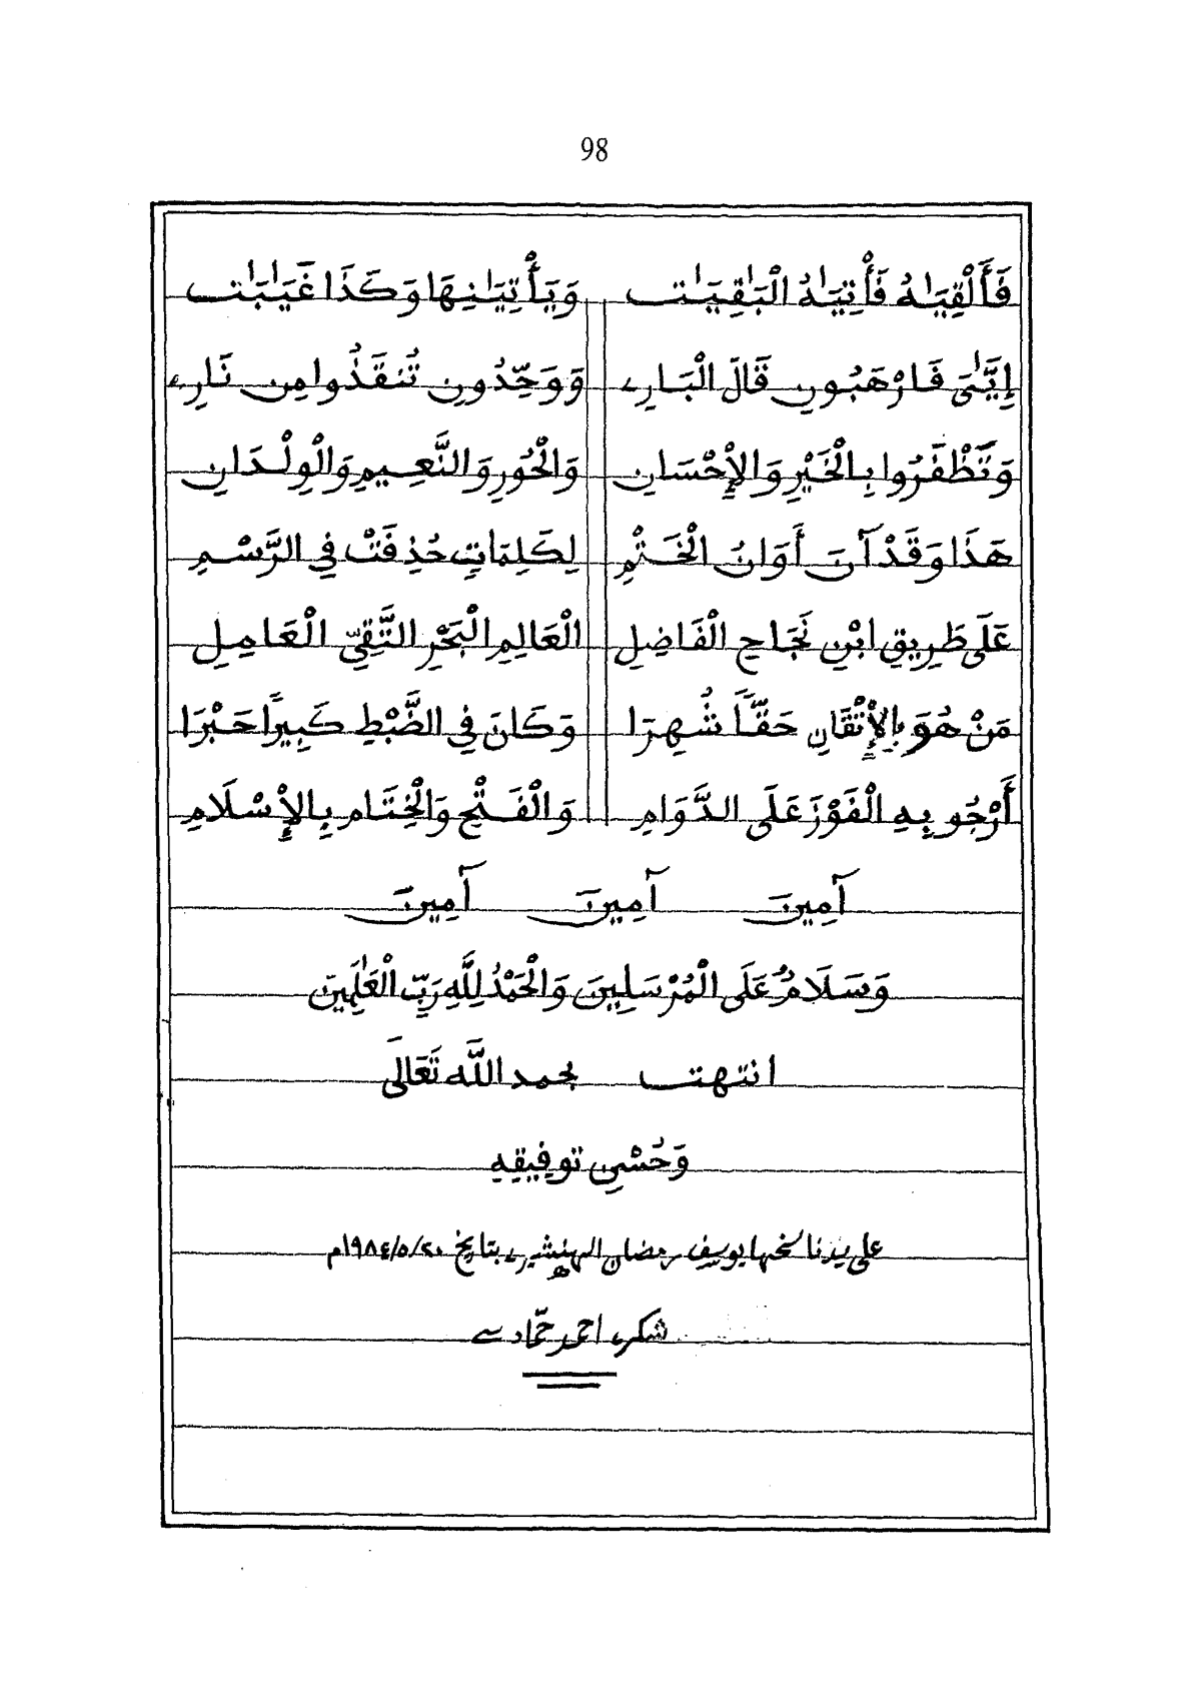 98
فَأَلْقِيَٰهُ فَأْتِيَٰهُ الْبَٰقِيَٰت وَيَأْتِيَٰنِهَا وَكَذَا غَيَٰبَٰت
إِيَّٰىَ فَارْهَبُونِ قَالَ الْبَارِي وَوَحِّدُونِ تُنقَذُوا مِن نَارِي
وَتَظْفَرُوا بِالْخَيْرِ وَالإِحْسَانِ وَالْحُورِ وَالنَّعِيمِ وَالْوِلْدَانِ
هَذَا وَقَدْ آنَ أَوَانُ الْخَتْمِ لِكَلِمَاتٍ حُذِفَتْ فِي الرَّسْمِ
عَلَى طَرِيقِ ابْنِ نَجَاحِ الْفَاضِلِ الْعَالِمِ الْبَحْرِ التَّقِيِّ الْعَامِلِ
مَنْ هُوَ بِالإِتْقَانِ حَقًّا شُهِرَا وَكَانَ فِي الضَّبْطِ كَبِيرًا حَبْرَا
أَرْجُو بِهِ الْفَوْزَ عَلَى الدَّوَامِ وَالْفَتْحِ وَالْخِتَامِ بِالإِسْلَامِ
آمِينَ آمِينَ آمِينَ
وَسَلَامٌ عَلَى الْمُرْسَلِينَ وَالْحَمْدُ لِلَّهِ رَبِّ الْعَٰلَمِينَ
انتهت بحمد اللَّه تَعَالَى
وَحُسْنِ توفِيقِهِ
على يد ناسخها يوسف رمضان الهنشيري بتاريخ ٢٠/٥/١٩٨٤م
شكري احمد حمّادي